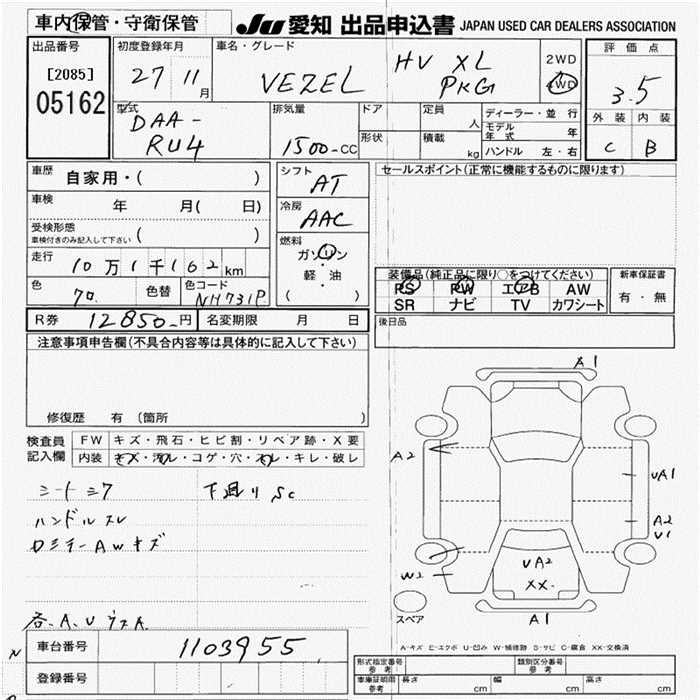 車内保管・守衛保管
JU 愛知 出品申込書 JAPAN USED CAR DEALERS ASSOCIATION
出品番号
[2085]
05162
初度登録年月
27 11月
車名・グレード
VEZEL HV XL PKG
2WD
4WD
評価点
3.5
外装 内装
C B
型式
DAA-
RU4
排気量
1500-CC
ドア
形状
定員
人
積載
kg
ディーラー・並行
モデル年式 年
ハンドル 左・右
車歴
自家用・( )
車検
年 月( 日)
受検形態
車検付きのみ記入して下さい ( )
走行
10万1千162km
色
色替
色コード
NH731P
シフト
AT
冷房
AAC
燃料
ガソリン
・
軽・油
( )
セールスポイント(正常に機能するものに限ります)
装備品(純正品に限り○をつけてください)
PS PW エアB AW
SR ナビ TV カワシート
新車保証書
有・無
R券 12850-円
名変期限 月 日
後日品
注意事項申告欄(不具合内容等は具体的に記入して下さい)
修復歴 有(箇所 )
検査員
記入欄
FW キズ・飛石・ヒビ割・リペア跡・X要
内装 キズ・汚レ・コゲ・穴・スレ・キレ・破レ
シートミワ
下廻りSC
ハンドルスレ
ロミテーAWキズ
各、A、U ウスA
A1
A2
UA1
A2
U1
W2
UA2
XX
A1
スペア
A-キズ E-エクボ U-凹み W-補修跡 S-サビ C-腐食 XX-交換済
N
車台番号
1103955
登録番号
形式指定番号
参考
類別区分番号
参考
車庫証明用
参考
長さ cm
幅 cm
高さ cm